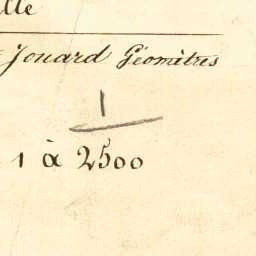 lle
Jouard Géomètres
1
1 à 2500